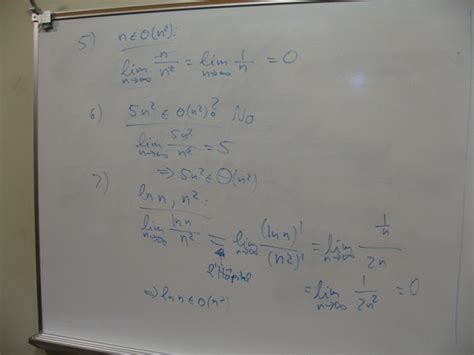 5) n ∈ o(n²):
lim n→∞ n/n² = lim n→∞ 1/n = 0
6) 5n² ∈ o(n²)? No
lim n→∞ 5n²/n² = 5
⇒ 5n² ∈ Θ(n²)
7) ln n, n²:
lim n→∞ ln n/n² = lim n→∞ (ln n)'/(n²)' = lim n→∞ 1/n / 2n
l'Hôpital
= lim n→∞ 1/2n² = 0
⇒ ln n ∈ o(n²)